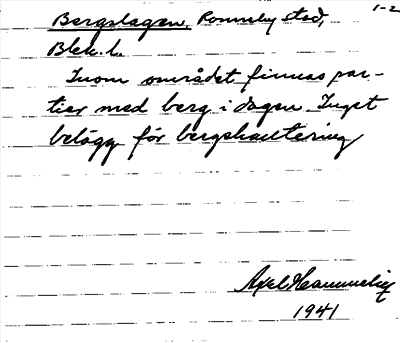 Bergslagen, Ronneby stad, 1-2
Blek. l.
Inom området finnas par-
tier med berg i dagen. Inget
belägg för bergshantering
Axel
1941